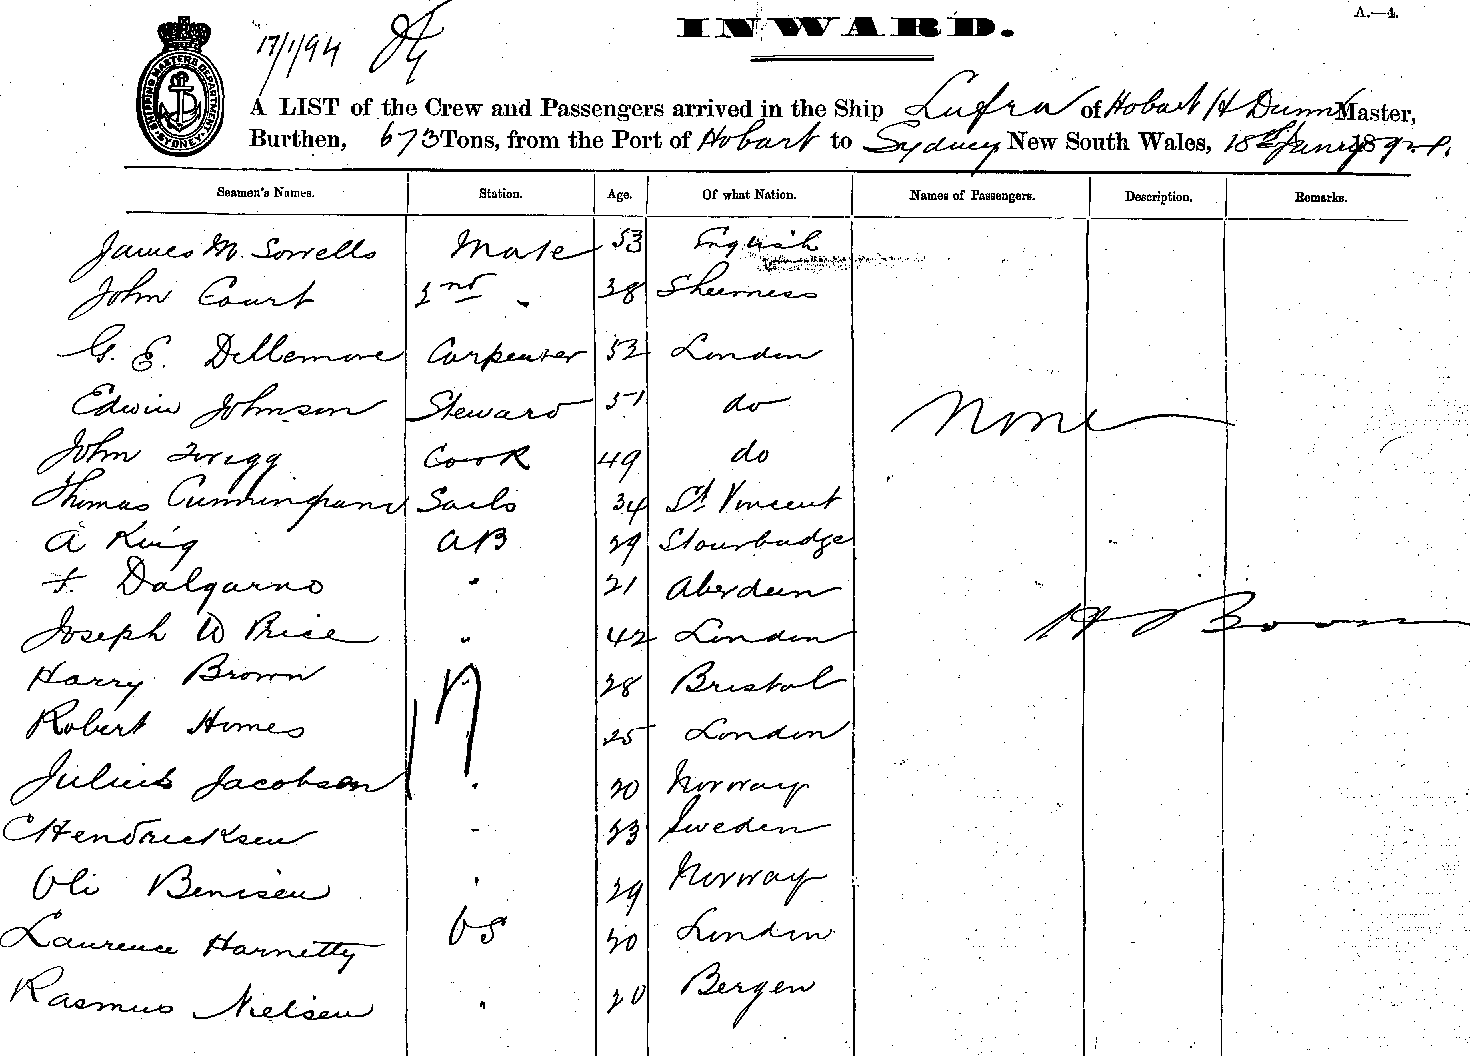 INWARD.
A.—4.
17/1/94
SHIPPING MASTERS DEPARTMENT SYDNEY
A LIST of the Crew and Passengers arrived in the Ship Lufra of Hobart H Master,
Burthen, 673 Tons, from the Port of Hobart to Sydney New South Wales, 18th Jany 189
Seamen's Names. Station. Age. Of what Nation. Names of Passengers. Description. Remarks.
James M. Mate 53 English
John Court 2nd " 38 Sheerness
G. E. Dellemore Carpenter 52 London
Edwin Johnson Steward 51 do
None
John Twigg Cook 49 do
Thomas Cunningham Sails 34 St Vincent
A King AB 29 Stourbridge
F. Dalgarno " 21 Aberdeen
Joseph W Price " 42 London
Harry Brown 28 Bristol
17
Robert Homes 25 London
Julius Jacobsen " 20 Norway
C Hendricksen " 23 Sweden
Oli Bensisen " 29 Norway
Laurence Harnetty OS 20 London
Rasmus Nielsen " 20 Bergen